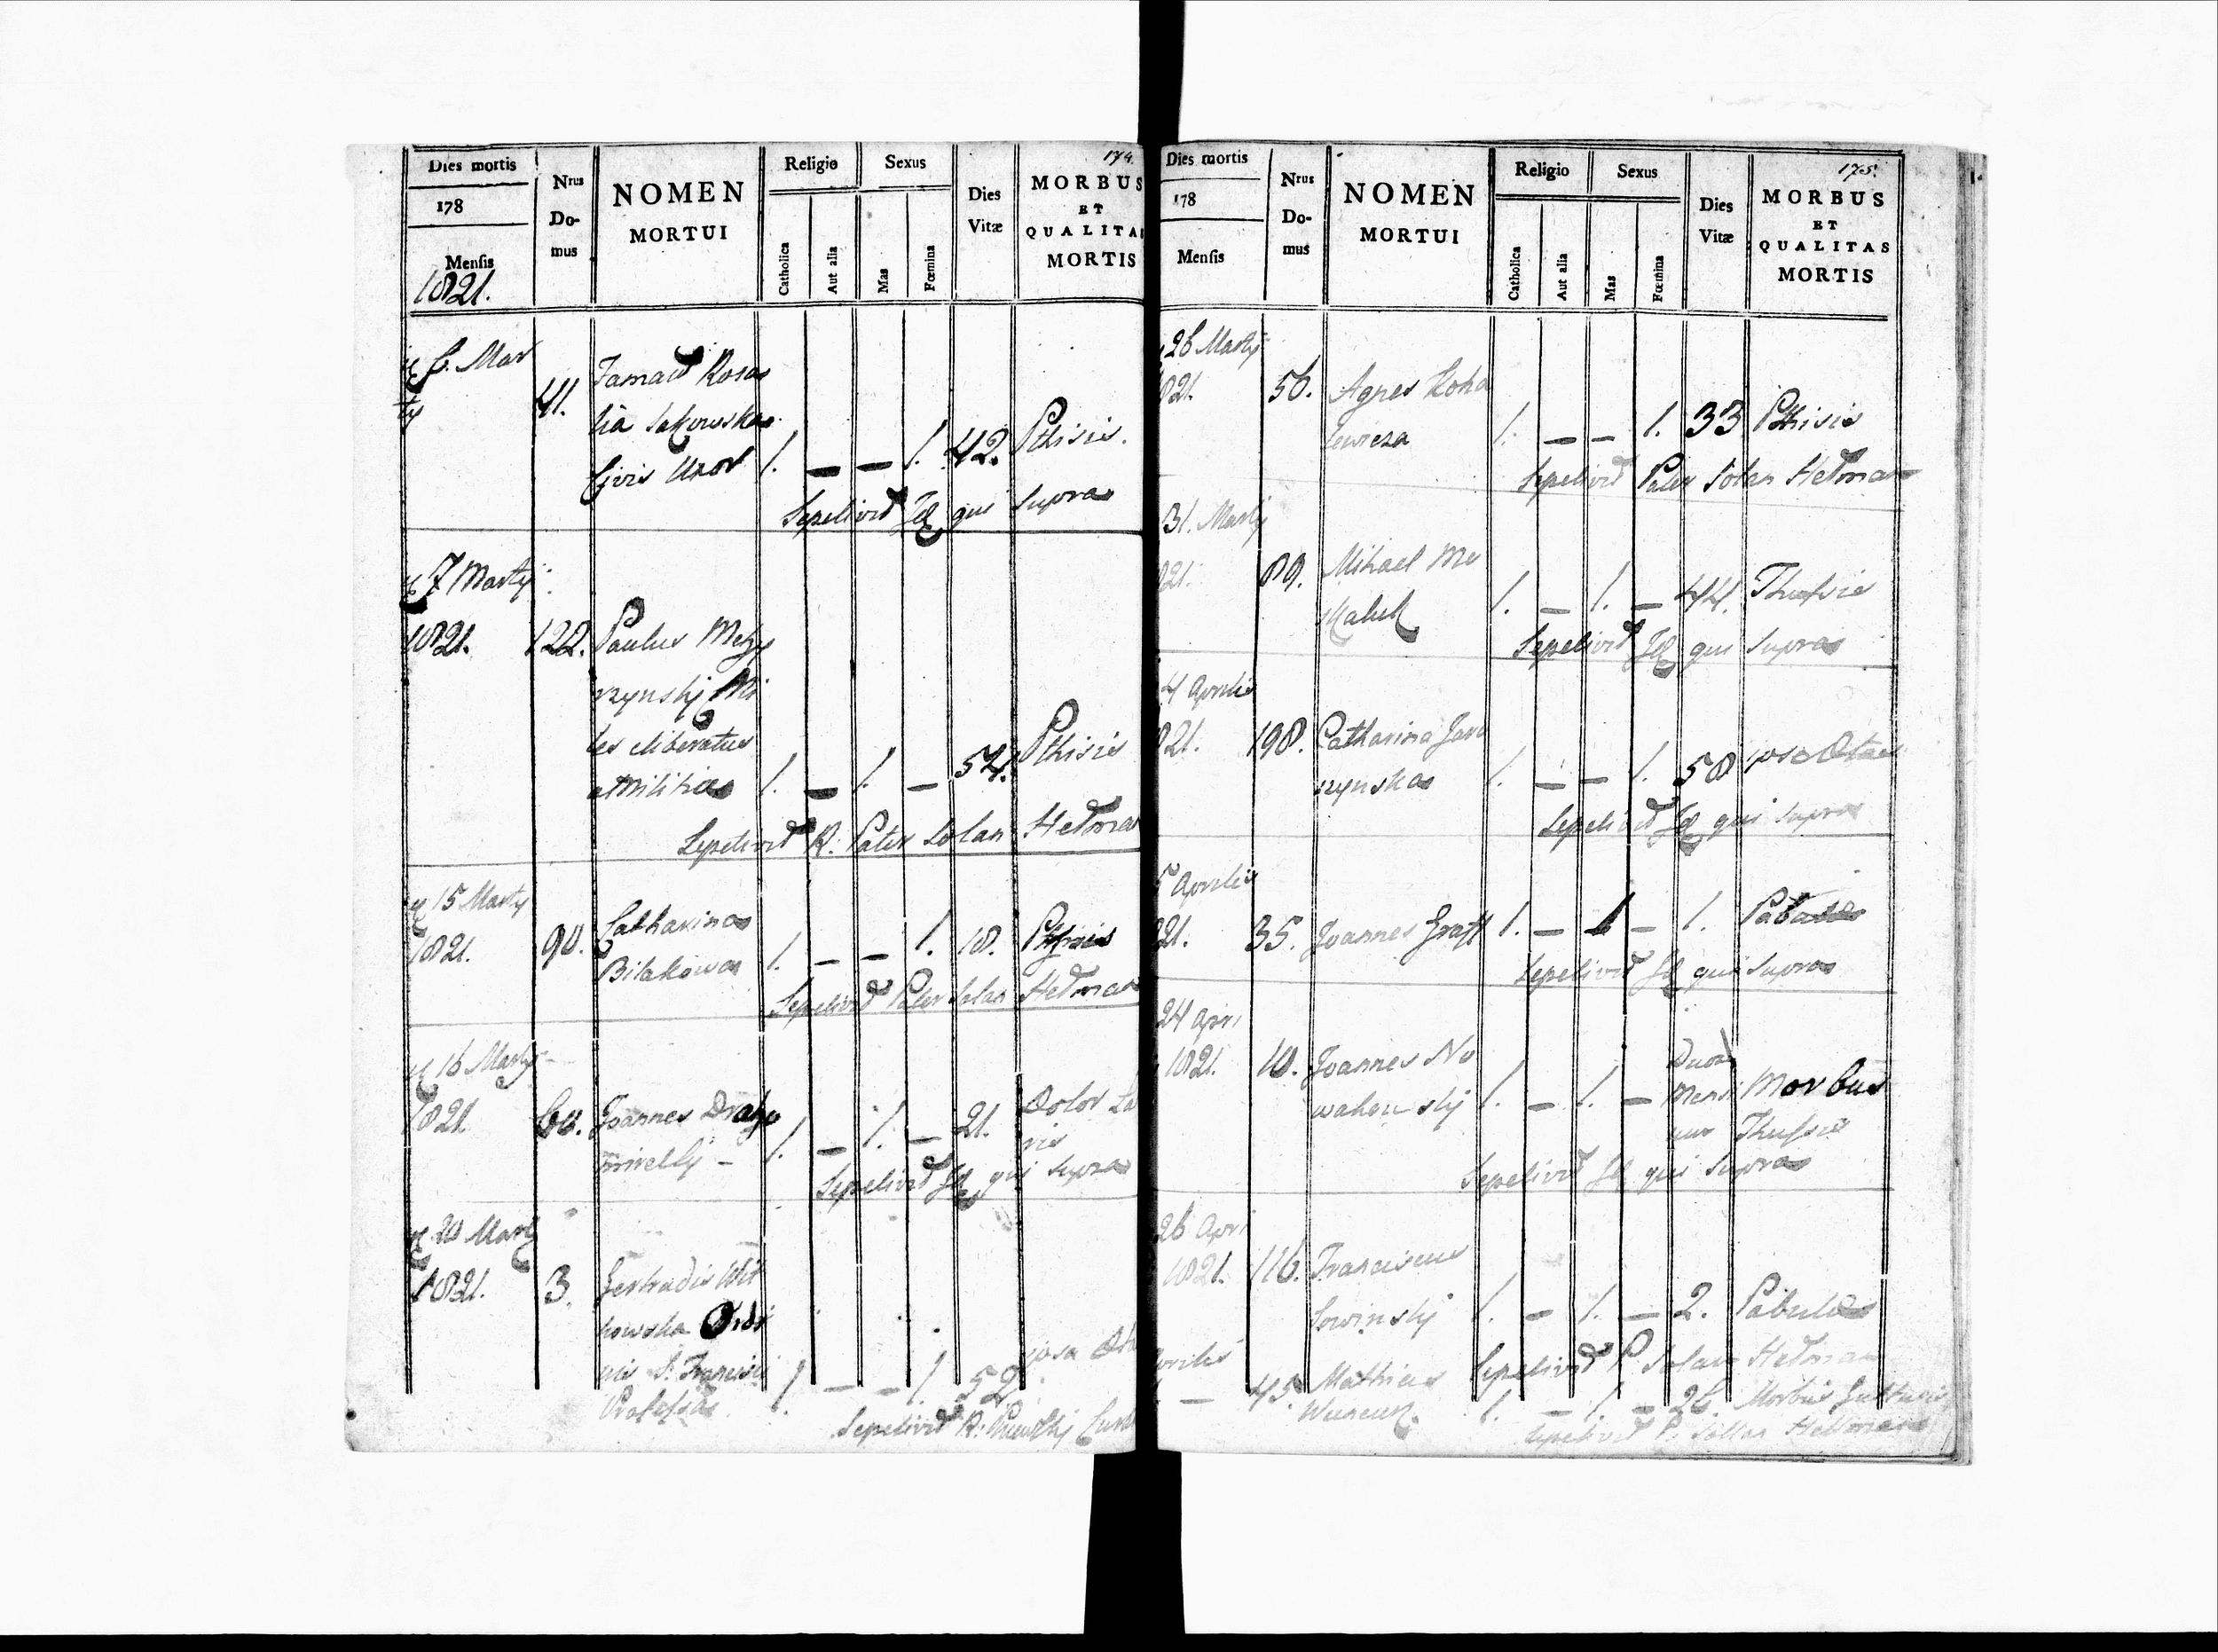 174.
Dies mortis
178
Mensis
1821.
Nrus
Do-
mus
NOMEN
MORTUI
Religio
Catholica
Aut alia
Sexus
Mas
Fœmina
Dies
Vitæ
MORBUS
ET
QUALITAS
MORTIS
6. Mar
ty
41.
Rosa
lia Sakowska
Civis Uxor 1. — — 1. 42. Pthisis.
Sepelivit Id qui Supra
7 Marty
1821. 122. Paulus
rzynskj Mi
les liberatus
a Militia 1. — 1. — 54. Pthisis
Sepelivit R: Pater Solan Hetman
15 Marty
1821. 90. Catharina
Bilakowa 1. — — 1. 18.
Sepelivit Pater Solan Hetman
16 Marty
1821. Joannes
1. — 1. — 21. Dolor
Sepelivit Id qui Supra
20 Marty
1821. 3. Gertrudis Wit
kowska Ordi
nis S. Francisci
Professa 1. — — 1. 52. ipsa
Sepelivit R:
175.
Dies mortis
178
Mensis
Nrus
Do-
mus
NOMEN
MORTUI
Religio
Catholica
Aut alia
Sexus
Mas
Fœmina
Dies
Vitæ
MORBUS
ET
QUALITAS
MORTIS
26 Marty
821. 56. Agnes Koha
1. — — 1. 33 Pthisis
Sepelivit Pater Solan Hetman
31. Marty
821. 89. Mihael Me
1. — 1. — 44. Thussis
Sepelivit Id qui Supra
4 Aprilis
821. 198. Catharina Jaro
rzynska 1. — — 1. 58
Sepelivit Id qui Supra
5 Aprilis
821. 35. Joannes Graff 1. — 1. — 1.
Sepelivit Id qui Supra
24 Apri
1821. 10. Joannes No
wakowskj 1. — 1. — Duor
Mensi
um
Morbus
Thussis
Sepelivit Id qui Supra
26 Apri
1821. 116. Franciscus
Sowinskj 1. — 1. — 2. Pabula
Sepelivit P. Solan Hetman
Aprilis
— 45. Mathias
1. — 1. — 26. Morbus Gutturis
Sepelivit P. Sollan Hetman